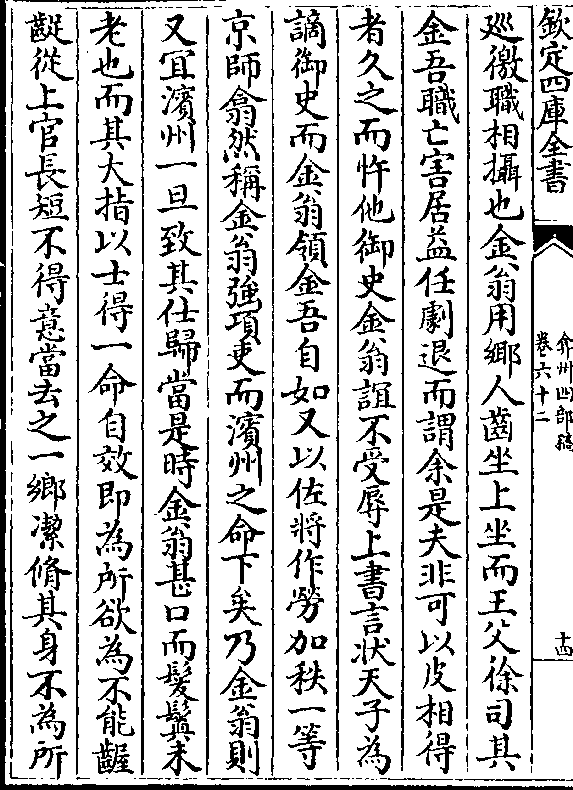 欽定四庫全書
弇州四部稿
卷六十二
十四
廵徼職相攝也金翁用鄉人齒坐上坐而王父徐司其
金吾職亡害居益任劇退而謂余是夫非可以皮相得
者久之而忤他御史金翁誼不受辱上書言狀天子為
謫御史而金翁領金吾自如又以佐將作勞加秩一等
京師翕然稱金翁強項吏而濱州之命下矣乃金翁則
又冝濱州一旦致其仕歸當是時金翁甚口而髮鬢未
老也而其大指以士得一命自效即為所欲為不能齷
齪從上官長短不得意當去之一鄉潔脩其身不為所